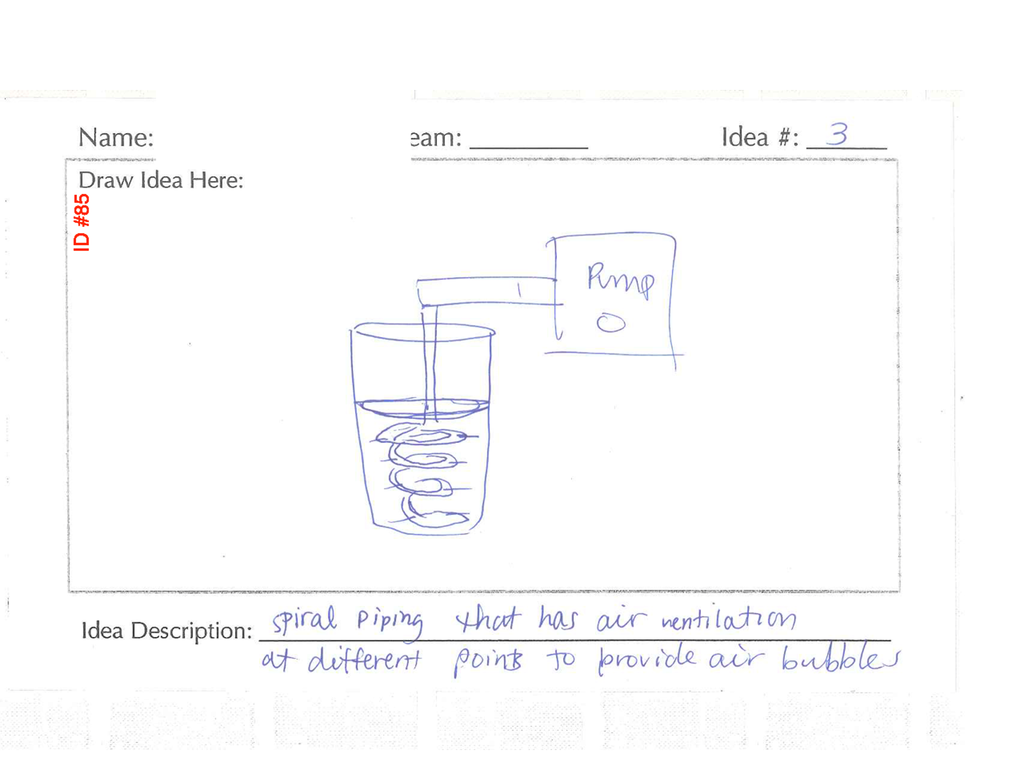 Name:
eam:
Idea #: 3
Draw Idea Here:
ID #85
Pump
Idea Description: spiral piping that has air ventilation
at different points to provide air bubbles